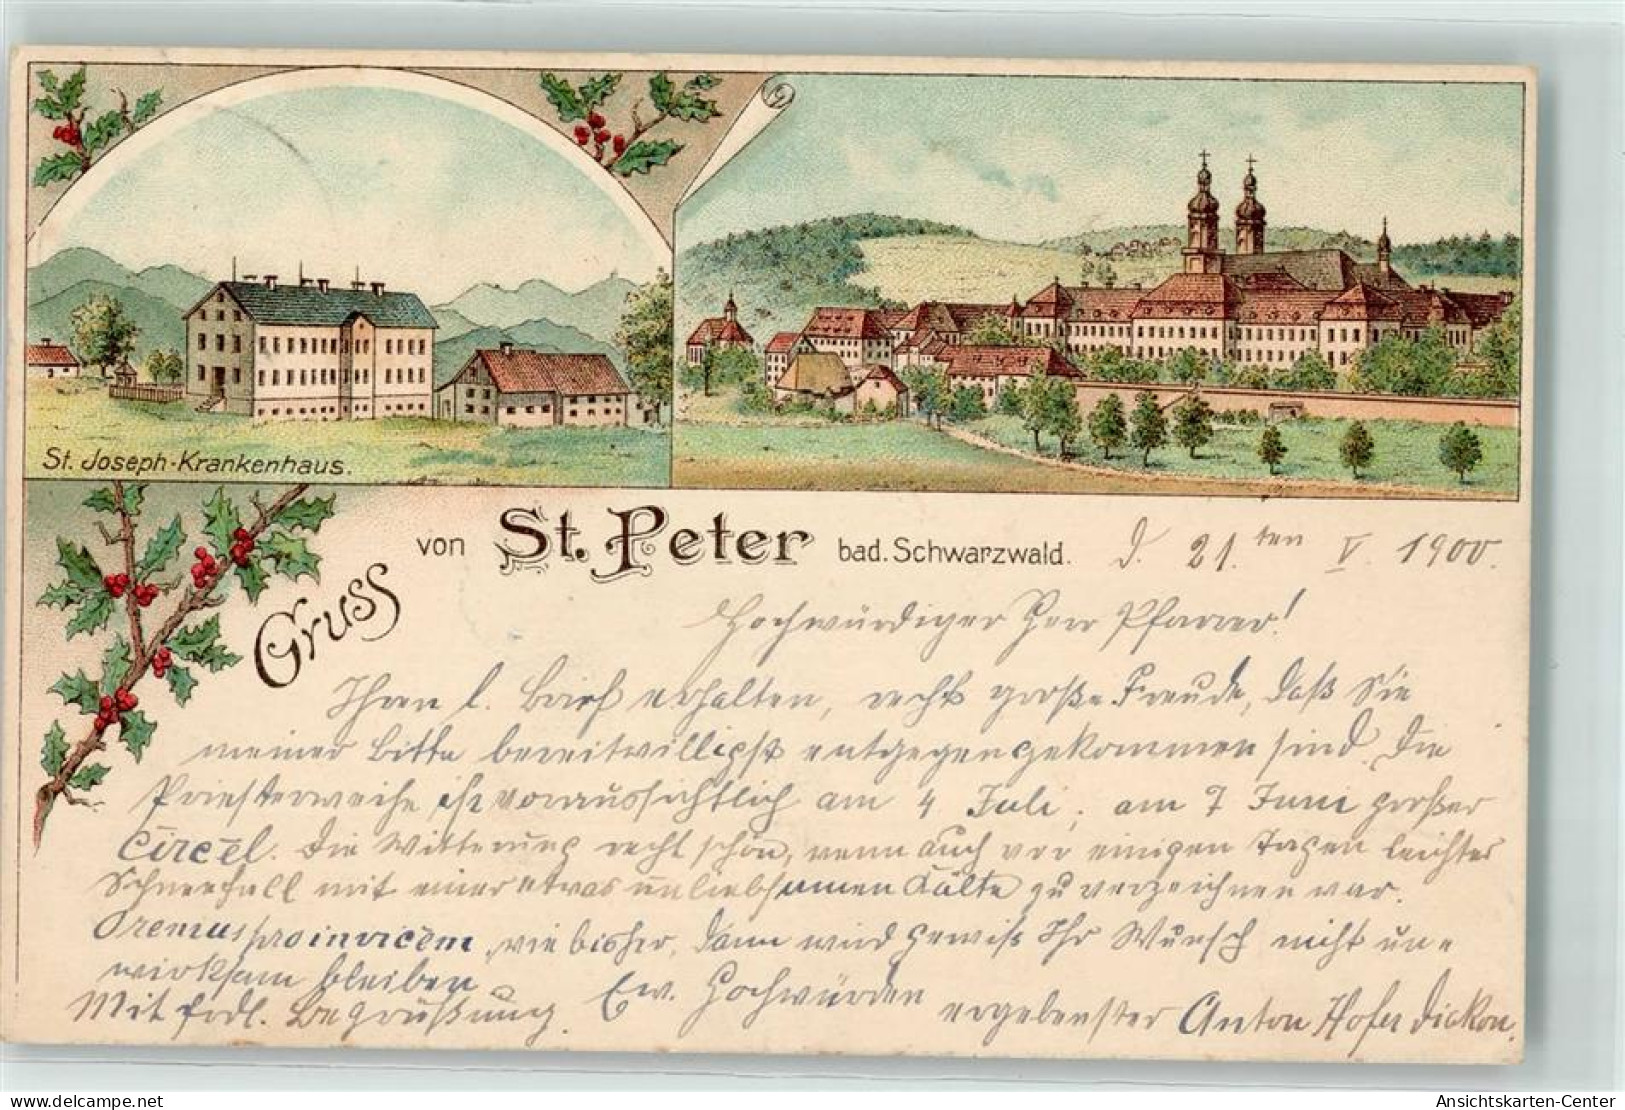 St. Joseph-Krankenhaus.
Gruss von St. Peter bad. Schwarzwald.
d. 21.ten V. 1900.
Hochwürdiger Herr Pfarrer!
Ihren l. Brief erhalten, recht große Freude, daß Sie
meiner Bitte bereitwilligst entgegengekommen sind. Die
Priesterweihe ist voraussichtlich am 4 Juli, am 7 Juni großer
Circel. Die Witterung recht schön, wenn auch vor einigen Tagen leichter
Schneefall mit einer etwas unliebsamen Kälte zu verzeichnen war.
Oremus pro invicem, wie bisher, dann wird gewiß Ihr Wunsch nicht un=
wirksam bleiben
Mit frdl. Begrüßung. Ew. Hochwürden ergebenster Anton Hofer Diakon.
Ansichtskarten-Center.com
Ansichtskarten-Center